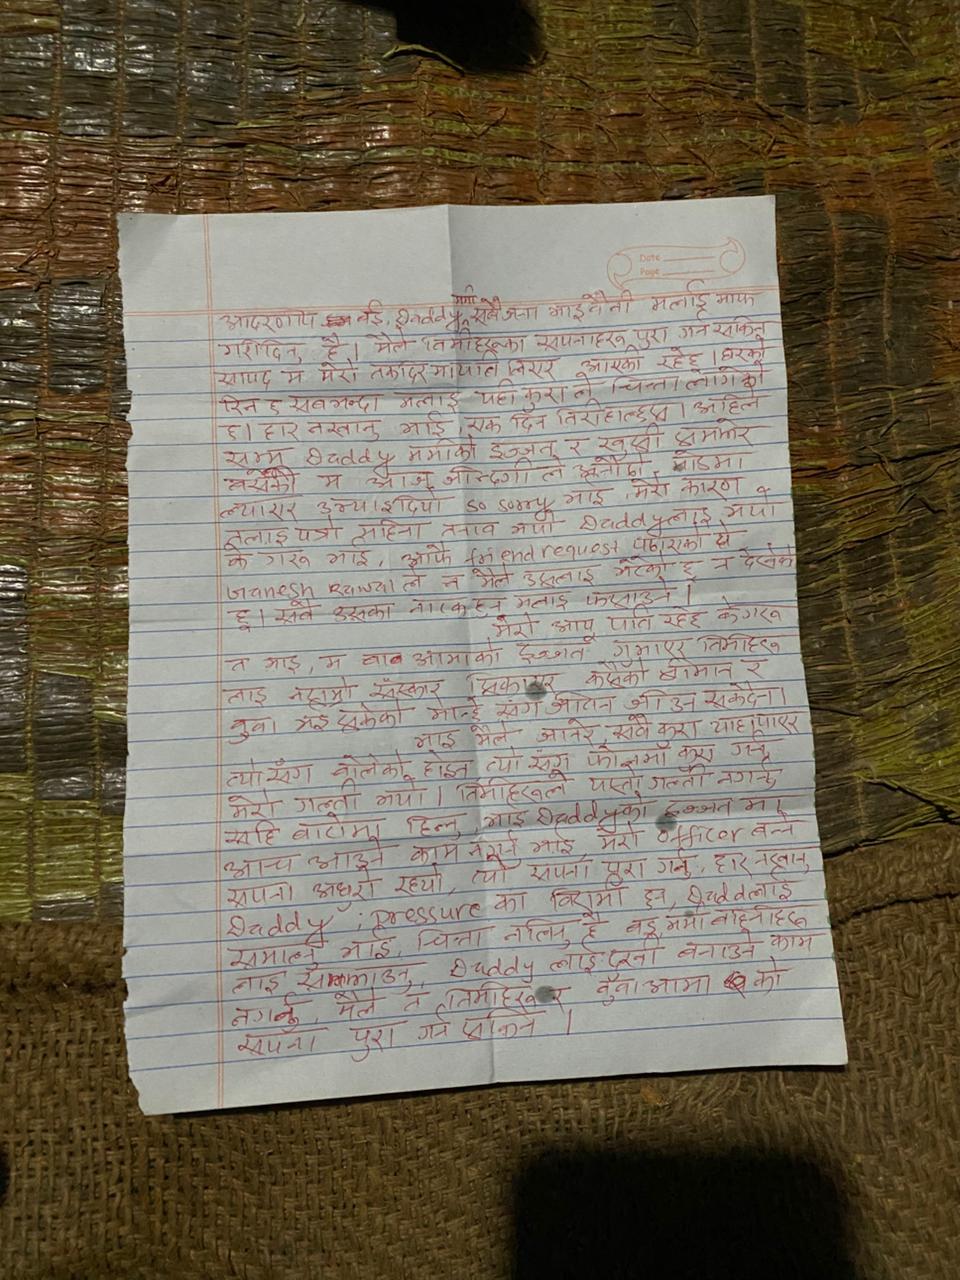 Date
Page
ममी
आदरणीय वई, Daddy, सबैजना भाइ बैनी मलाई माफ
गरीदिनु है। मैले तिमीहरूका सपनाहरू पुरा गर्न सकिन
सायद म मेरो तकदिरमा यति लिएर आएको रहेछु। घरको
रिन छ सबभन्दा मलाई यही कुरा ले चिन्ता लागेको
छ। हार नखानु भाई एक दिन तिरीहाल्छौ। अहिले
सम्म Daddy ममीको इज्जत र खुशी सम्झेर
बसेकी म आज जिन्दगी ले अनौठो मोडमा
ल्याएर उभ्याइदियो so sorry भाई मेरो कारण
तलाई पनी तनाव भयो Daddy लाई भयो
के गरू भाई, आफै friend request पठाएको हो
ले न मैले उसलाई भेटेको छु न देखेको
छु। सबै उसका नाटक हुन मलाई फसाउने।
मेरो आयु यति रहेछ के गरू
त भाइ, म बाबा आमाको इज्जत गुमाएर तिमीहरू
लाइ नराम्रो संस्कार सिकाएर कसैको र
बुवा भई सकेको मान्छे सँग जीवन जीउन सक्दैना
भाइ मैले जानेर सबै कुरा थाहा पाएर
त्यो सँग बोलेको होइन त्यो सँग फोनमा कुरा गर्नु
मेरो गल्ती भयो। तिमीहरूले यस्तो गल्ती नगर्नु
सहि बाटोमा हिड्नु भाइ Daddy को इज्जत मा
आच आउने काम नगर्नु भाई, मेरो officer बन्ने
सपना अधुरो रहयो, त्यो सपना पुरा गर्नु, हार नखानु
Daddy pressure का बिरामी हुन, Daddy लाई
समाल्नु भाइ, चिन्ता नलिनु है वई ममी बहिनीहरू
लाइ सम्झाउनु, Daddy लाइ दुखी बनाउने काम
नगर्नु, मैले त तिमीहरू र बुवा आमा को
सपना पुरा गर्न सकिन।